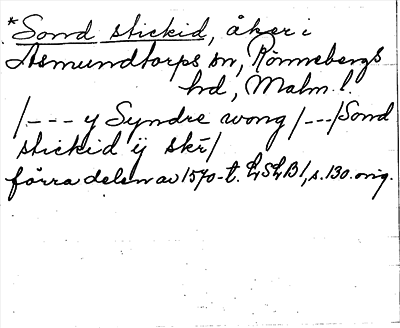 *Sond stickid, åker i
Asmundtorps sn, Rönnebergs
hd, Malm. l.
/--- y Syndre wong /---/Sond
stickid ij skr̄/
förra delen av 1570-t. LSLB1, s. 130. orig.